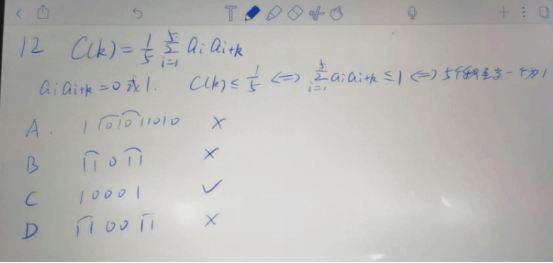 12 C(k)=1/5 5∑i=1 aᵢaᵢ₊ₖ
aᵢaᵢ₊ₖ=0或1. C(k)≤1/5 ⇔ 5∑i=1 aᵢaᵢ₊ₖ≤1 ⇔ 5个 一个为1
A. 1 1010 11010 ×
B 11 0 11 ×
C 10001 ✓
D 11 00 11 ×